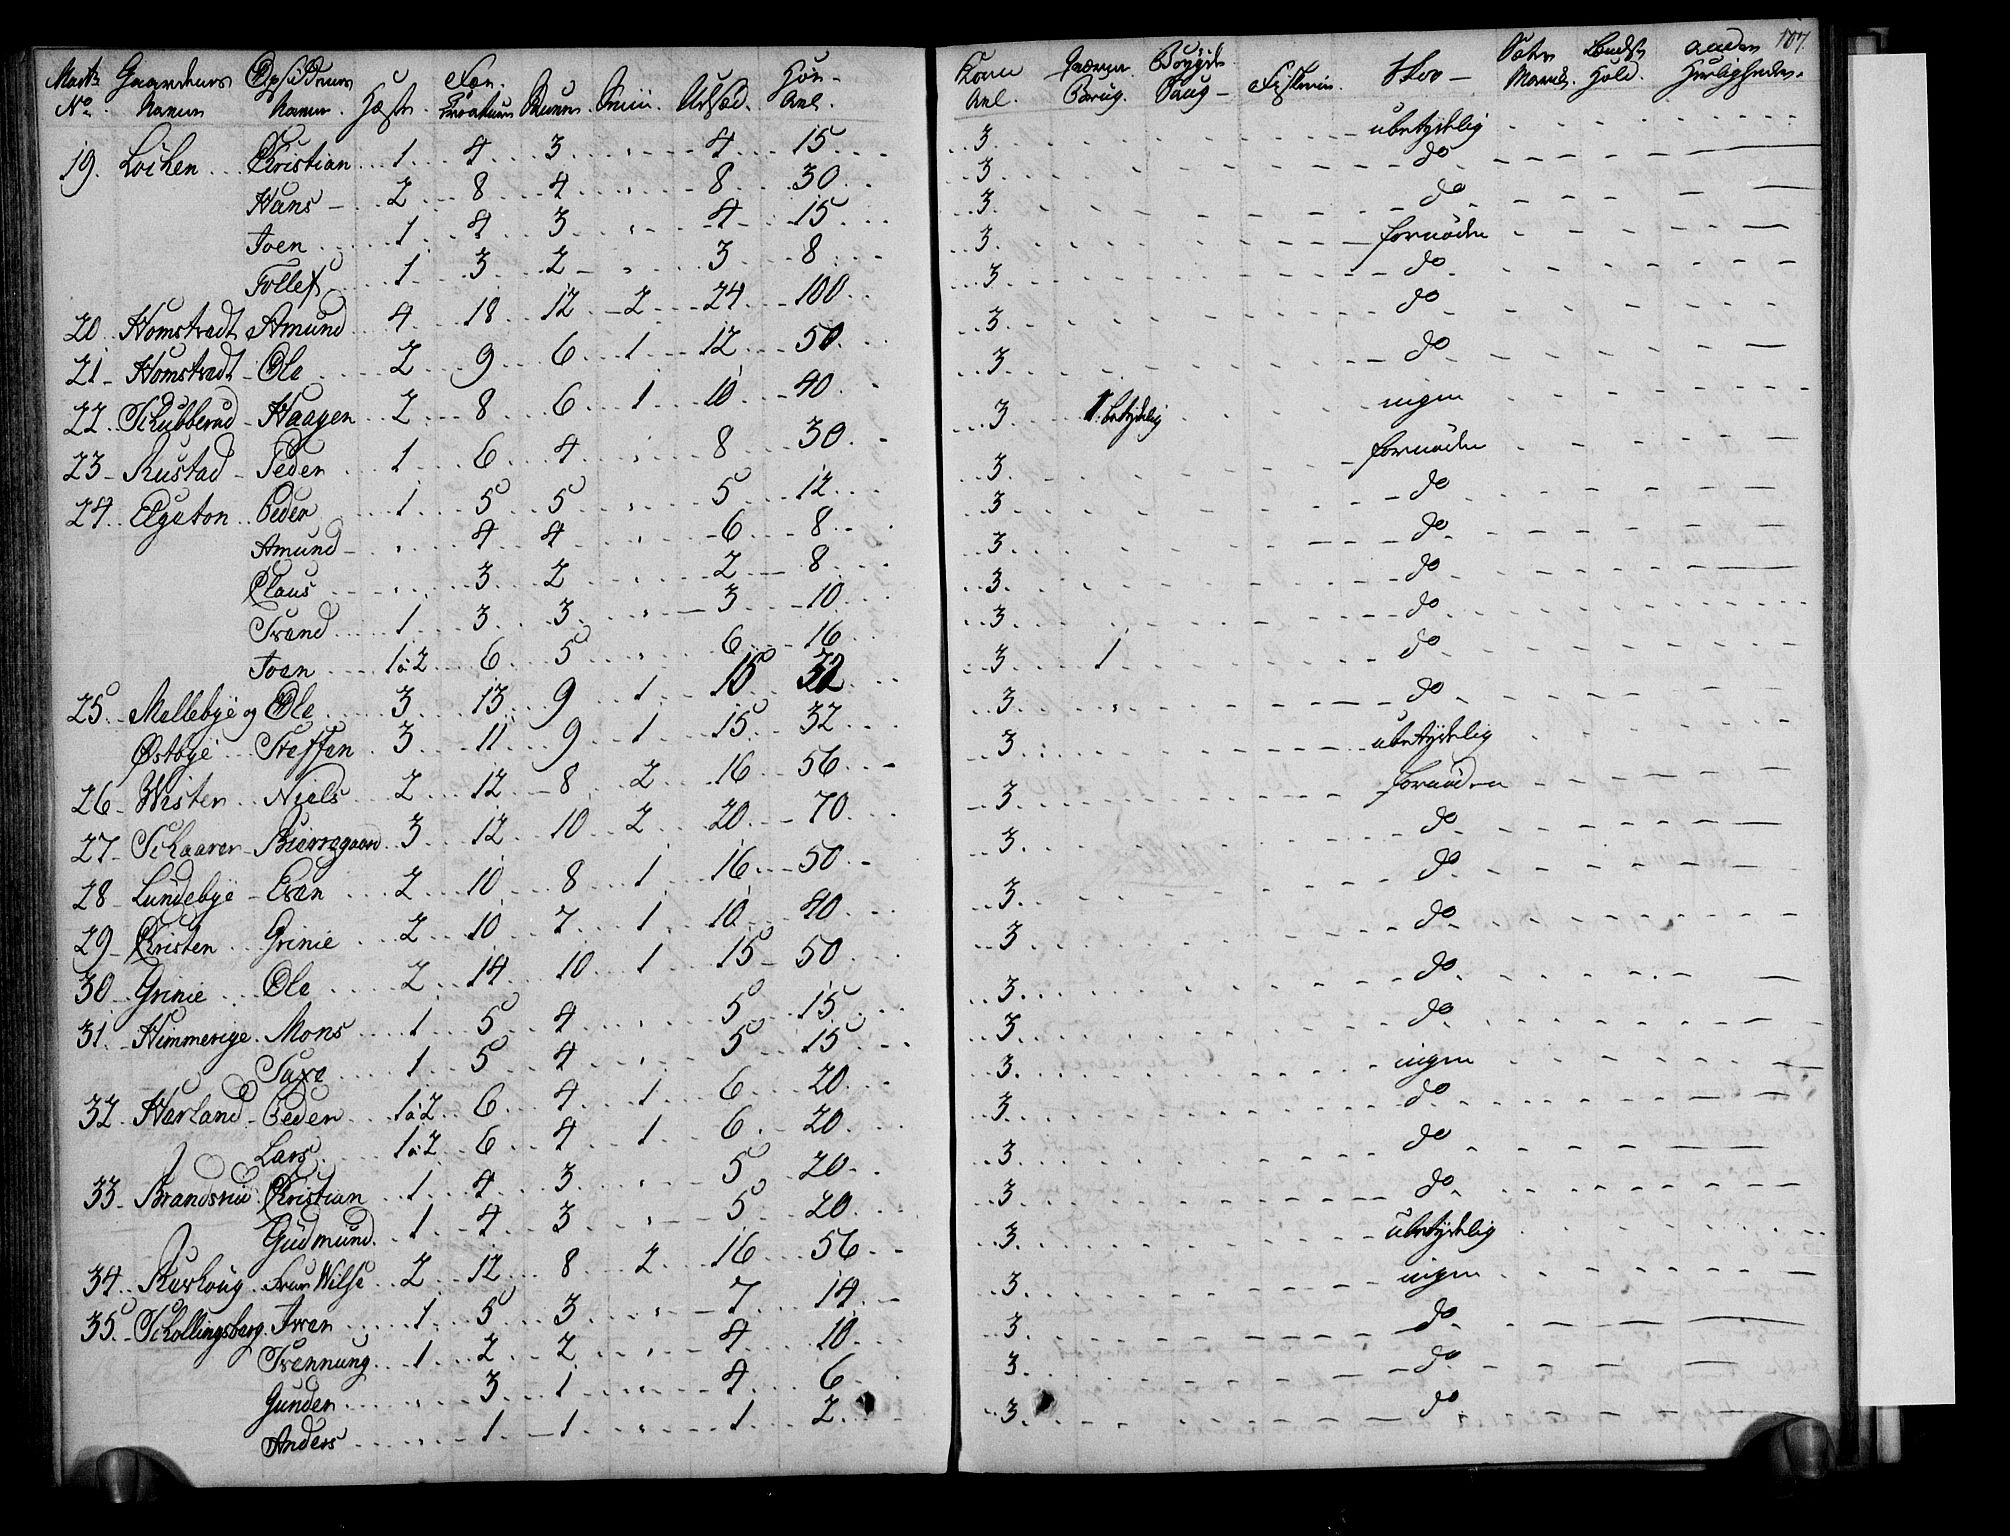 107.
Matr: No. Gaardenes Navne Opsiddernes Navne Hæste. Fæe. Creature Sviin. Udsæd. Høe-Avl. Korn Avl. Qværne Brug. Bøygde Saug- Fiskerie. Skov- Sæter March. Hold. anden Herligheder.
19. Löchen Christian 1 4 3 4 15 3 ubetydelig
Hans 2 8 4 8 30 3 do
Joen 1 4 3 4 15 3 do
Tollef 1 3 2 3 8 3 fornöden
20. Homstvedt Amund 4 18 12 2 24 100 3 do
21 Homstvedt Ole 2 9 6 1 12 50 3 do
22. Schubberud Haagen 2 8 6 1 10 40 3 do
23 Rustad Peder 1 6 4 8 30 3 1. betydelig ingen
24. Elgeton Peder 1 5 5 5 12 3 fornöden
Amund 4 4 6 8 3 do
Claus 3 2 2 8 3 do
Trond 1 3 3 3 10 3 do
Joen 1 à 2 6 5 6 16 3 do
25. Mellebye og Ole 3 13 9 1 15 32 3 1 do
Østbye Steffen 3 11 9 1 15 32 3 do
26 Wister Niels 2 12 8 2 16 56 3 ubetydelig
27 Schaaren Bierregaard 3 12 10 2 20 70 3 fornöden
28 Lundebye Even 2 10 8 1 16 50 3 do
29 Christen Grinie 2 10 7 1 10 40 3 do
30 Grinie Ole 2 14 10 1 15 50 3 do
31. Himmerige Mons 1 5 4 5 15 3 do
Saxe 1 5 4 5 15 3 do
32 Harland Peder 1 à 2 6 4 1 6 20 3 ingen
Lars 1 à 2 6 4 1 6 20 3 do
33 Brandsrüe Christian 1 4 3 5 20 3 do
Gudmund 1 4 3 5 20 3 do
34 Kurhoug Frue Wilse 2 12 8 2 16 56 3 ubetydelig
35. Schollingsberg Iver 1 5 3 7 14 3 ingen
Trennung 1 2 2 4 10 3 do
Gunder 3 1 4 6 3 do
Anders 1 1 1 2 3 do